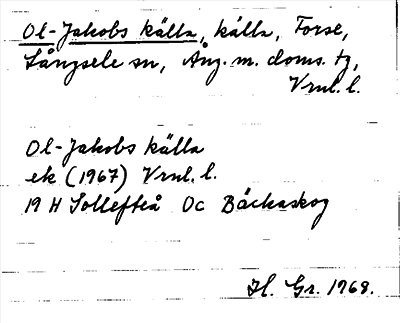 Ol-Jakobs källa, källa, Forse,
Långsele sn, Ång. m. doms. tg,
Vrnl. l.
Ol-Jakobs källa
ek (1967) Vrnl. l.
19 H Sollefteå Oc Bäckaskog
H. Gr. 1968.